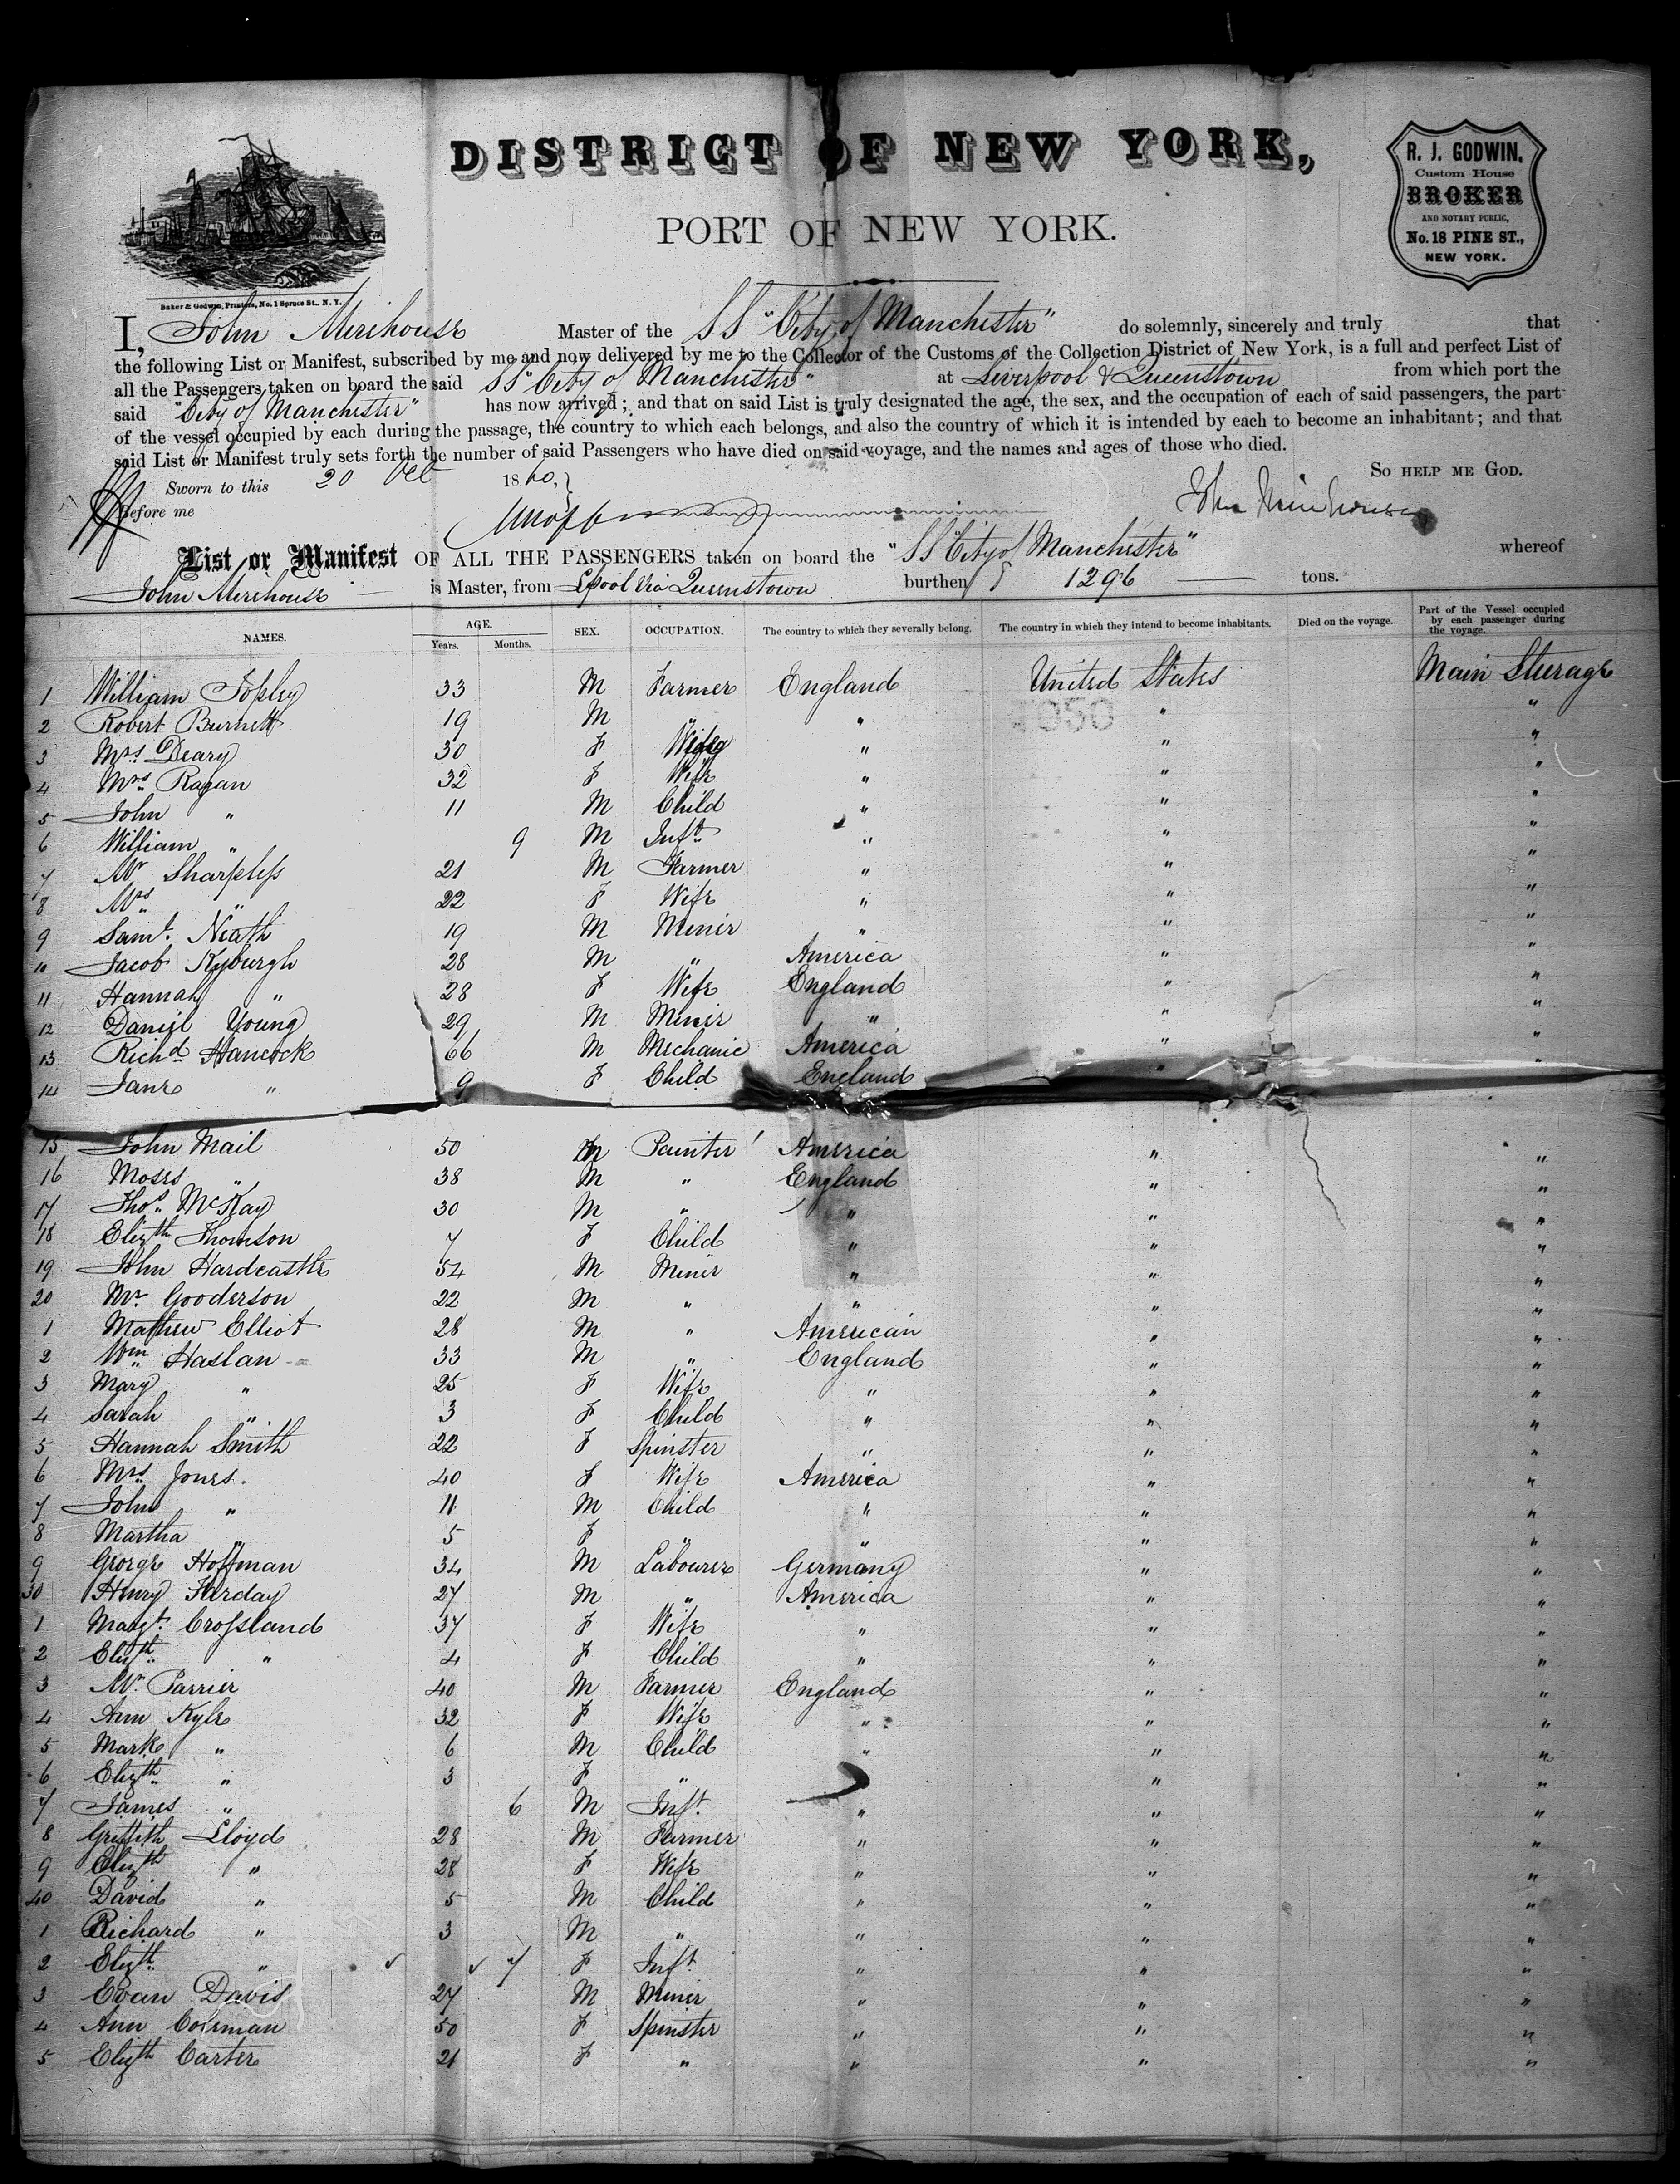 DISTRICT OF NEW YORK,
PORT OF NEW YORK.
Baker & Godwin, Printers, No. 1 Spruce St., N. Y.
R. J. GODWIN,
Custom House
BROKER
AND NOTARY PUBLIC,
No. 18 PINE ST.,
NEW YORK.
I, John Mirehouse Master of the SS "City of Manchester" do solemnly, sincerely and truly that
the following List or Manifest, subscribed by me and now delivered by me to the Collector of the Customs of the Collection District of New York, is a full and perfect List of
all the Passengers taken on board the said SS "City of Manchester" at Liverpool & Queenstown from which port the
said "City of Manchester" has now arrived; and that on said List is truly designated the age, the sex, and the occupation of each of said passengers, the part
of the vessel occupied by each during the passage, the country to which each belongs, and also the country of which it is intended by each to become an inhabitant; and that
said List or Manifest truly sets forth the number of said Passengers who have died on said voyage, and the names and ages of those who died.
SO HELP ME GOD.
Sworn to this 20 Oct 1860,
Before me
John Mirehouse
List or Manifest OF ALL THE PASSENGERS taken on board the "SS City of Manchester" whereof
John Mirehouse is Master, from Lpool via Queenstown burthen 1296 tons.
NAMES. AGE. Years. Months. SEX. OCCUPATION. The country to which they severally belong. The country in which they intend to become inhabitants. Died on the voyage. Part of the Vessel occupied by each passenger during the voyage.
1 William Topley 33 M Farmer England United States Main Steerage
2 Robert Burnett 19 M " " " "
3 Mrs Deary 30 F Wife " " "
4 Mrs Ragan 32 F Wife " " "
5 John " 11 M Child " " "
6 William " 9 M Inft " " "
7 Mr Sharpless 21 M Farmer " " "
8 Mrs " 22 F Wife " " "
9 Saml. Neath 19 M Miner " " "
10 Jacob Kyburgh 28 M " America " "
11 Hannah " 28 F Wife England " "
12 Daniel Young 29 M Miner " " "
13 Richd Hancock 66 M Mechanic America " "
14 Jane " 9 F Child England " "
15 John Mail 50 M Painter America " "
16 Moses " 38 M " England " "
17 Thos. McKay 30 M " " " "
18 Elizth Thomson 7 F Child " " "
19 John Hardcastle 54 M Miner " " "
20 Mr. Gooderson 22 M " " " "
1 Mathew Elliot 28 M " American " "
2 Wm Haslan 33 M " England " "
3 Mary " 25 F Wife " " "
4 Sarah " 3 F Child " " "
5 Hannah Smith 22 F Spinster " " "
6 Mrs Jones. 40 F Wife America " "
7 John " 11 M Child " " "
8 Martha " 5 F " " " "
9 George Hoffman 34 M Labourer Germany " "
30 Henry Furday 27 M " America " "
1 Margt. Crossland 37 F Wife " " "
2 Elizth " 4 F Child " " "
3 Mr. Parrier 40 M Farmer England " "
4 Ann Kyle 32 F Wife " " "
5 Mark " 6 M Child " " "
6 Elizth " 3 F " " "
7 James " 6 M Inft. " " "
8 Griffith Lloyd 28 M Farmer " " "
9 Elizth " 28 F Wife " " "
40 David " 5 M Child " " "
1 Richard " 3 M " " " "
2 Elizth " 7 F Inft " " "
3 Evan Davis 27 M Miner " " "
4 Ann Corman 50 F Spinster " " "
5 Elizth Carter 21 F " " " "